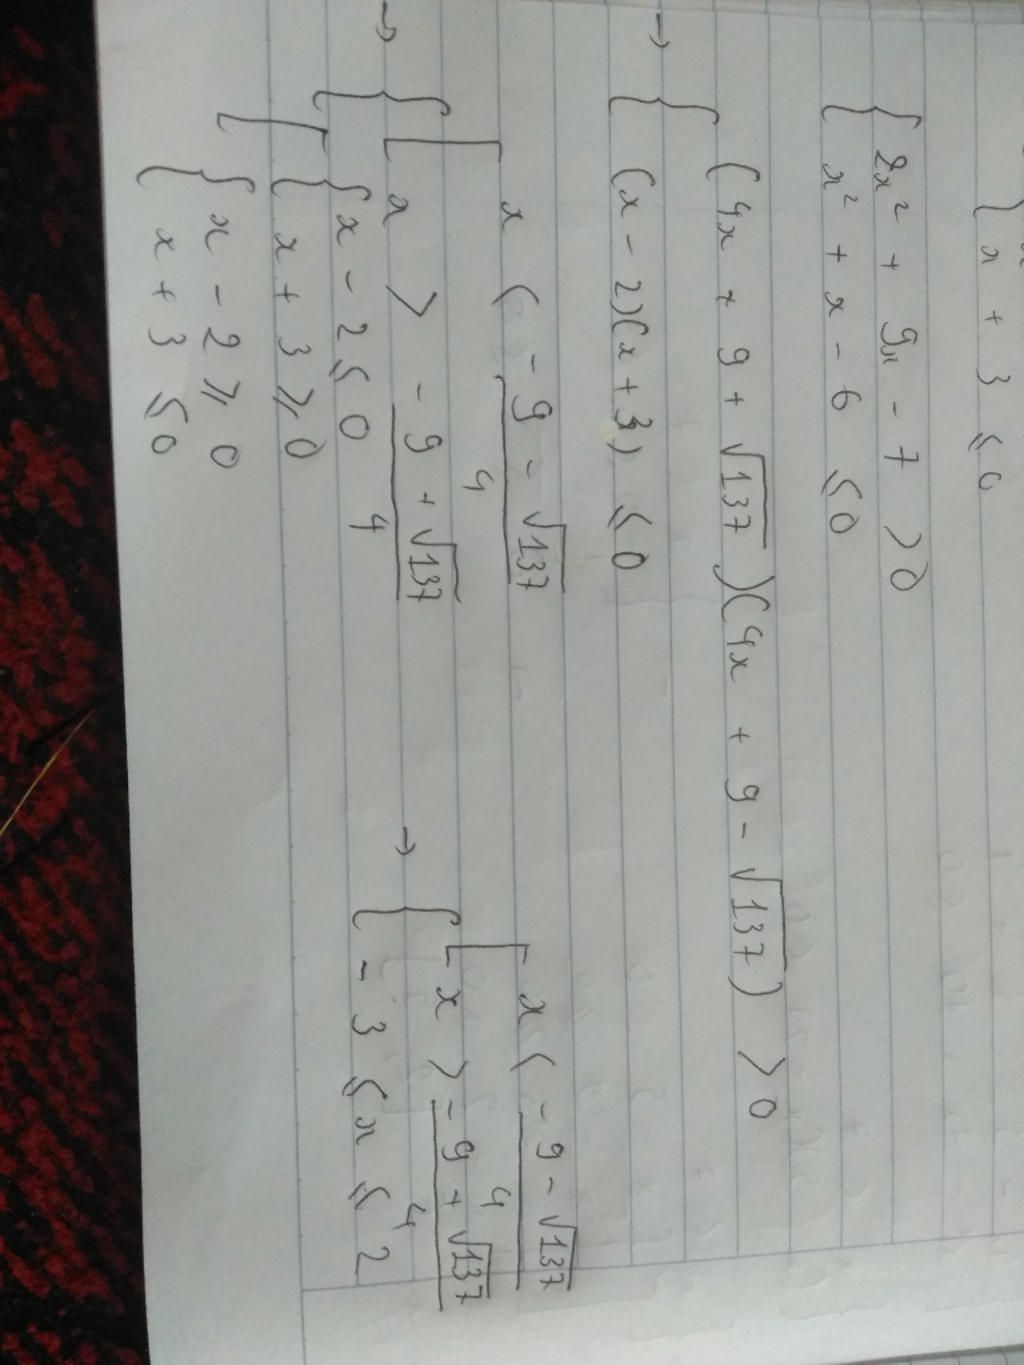 x + 3 ≤ 0
{ 2x² + 9x - 7 > 0
{ x² + x - 6 ≤ 0
→ { (4x + 9 + √137)(4x + 9 - √137) > 0
{ (x - 2)(x + 3) ≤ 0
→ { [ x < (-9 - √137)/4
[ x > (-9 + √137)/4
[ { x - 2 ≤ 0
{ x + 3 ≥ 0
{ x - 2 ≥ 0
{ x + 3 ≤ 0
→ { [ x < (-9 - √137)/4
[ x > (-9 + √137)/4
{ -3 ≤ x ≤ 2